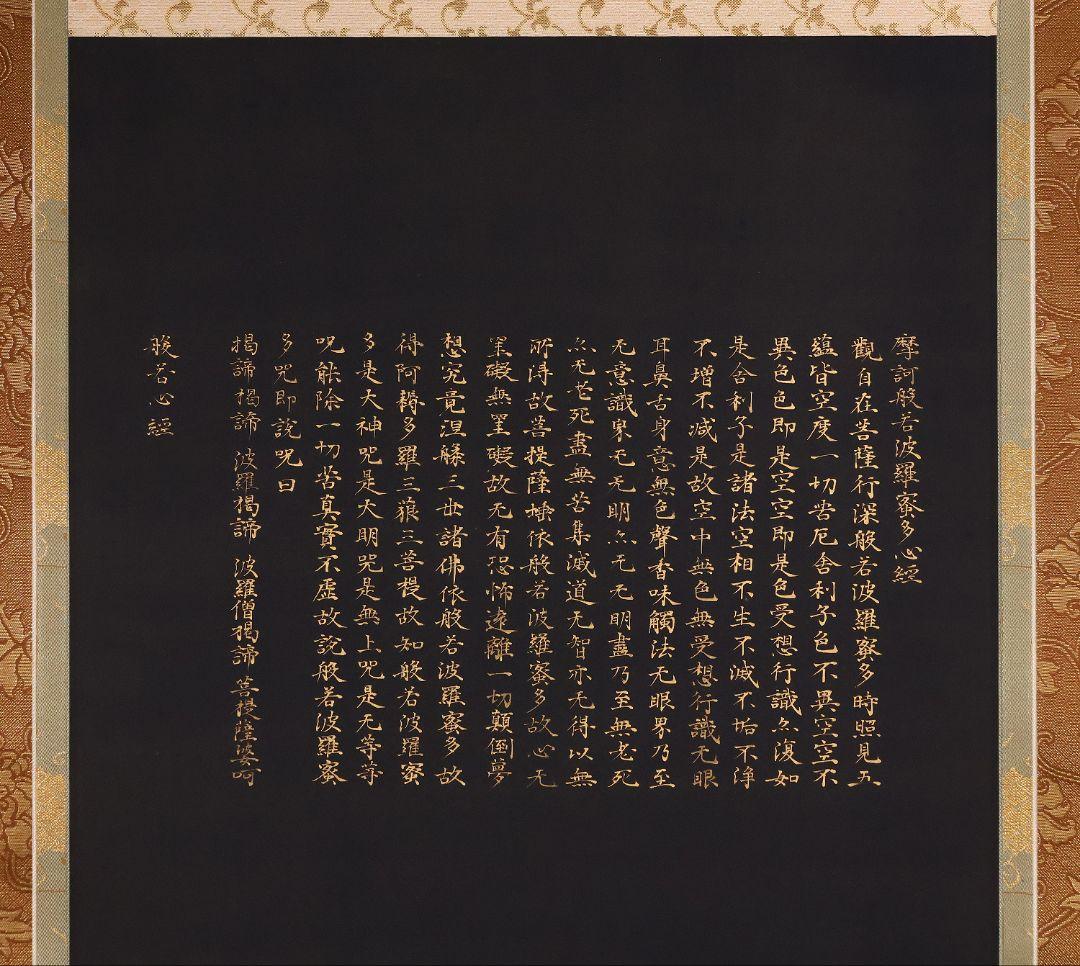 摩訶般若波羅蜜多心經
觀自在菩薩行深般若波羅蜜多時照見五
蘊皆空度一切苦厄舍利子色不異空空不
異色色即是空空即是色受想行識亦復如
是舍利子是諸法空相不生不滅不垢不淨
不增不減是故空中無色無受想行識无眼
耳鼻舌身意無色聲香味觸法无眼界乃至
无意識界无无明亦无无明盡乃至無老死
亦无老死盡無苦集滅道无智亦无得以無
所得故菩提薩埵依般若波羅蜜多故心无
罣礙無罣礙故无有恐怖遠離一切顛倒夢
想究竟涅槃三世諸佛依般若波羅蜜多故
得阿耨多羅三藐三菩提故知般若波羅蜜
多是大神咒是大明咒是無上咒是无等等
咒能除一切苦真實不虛故說般若波羅蜜
多咒即說咒曰
揭諦揭諦 波羅揭諦 波羅僧揭諦 菩提薩婆呵
般若心經